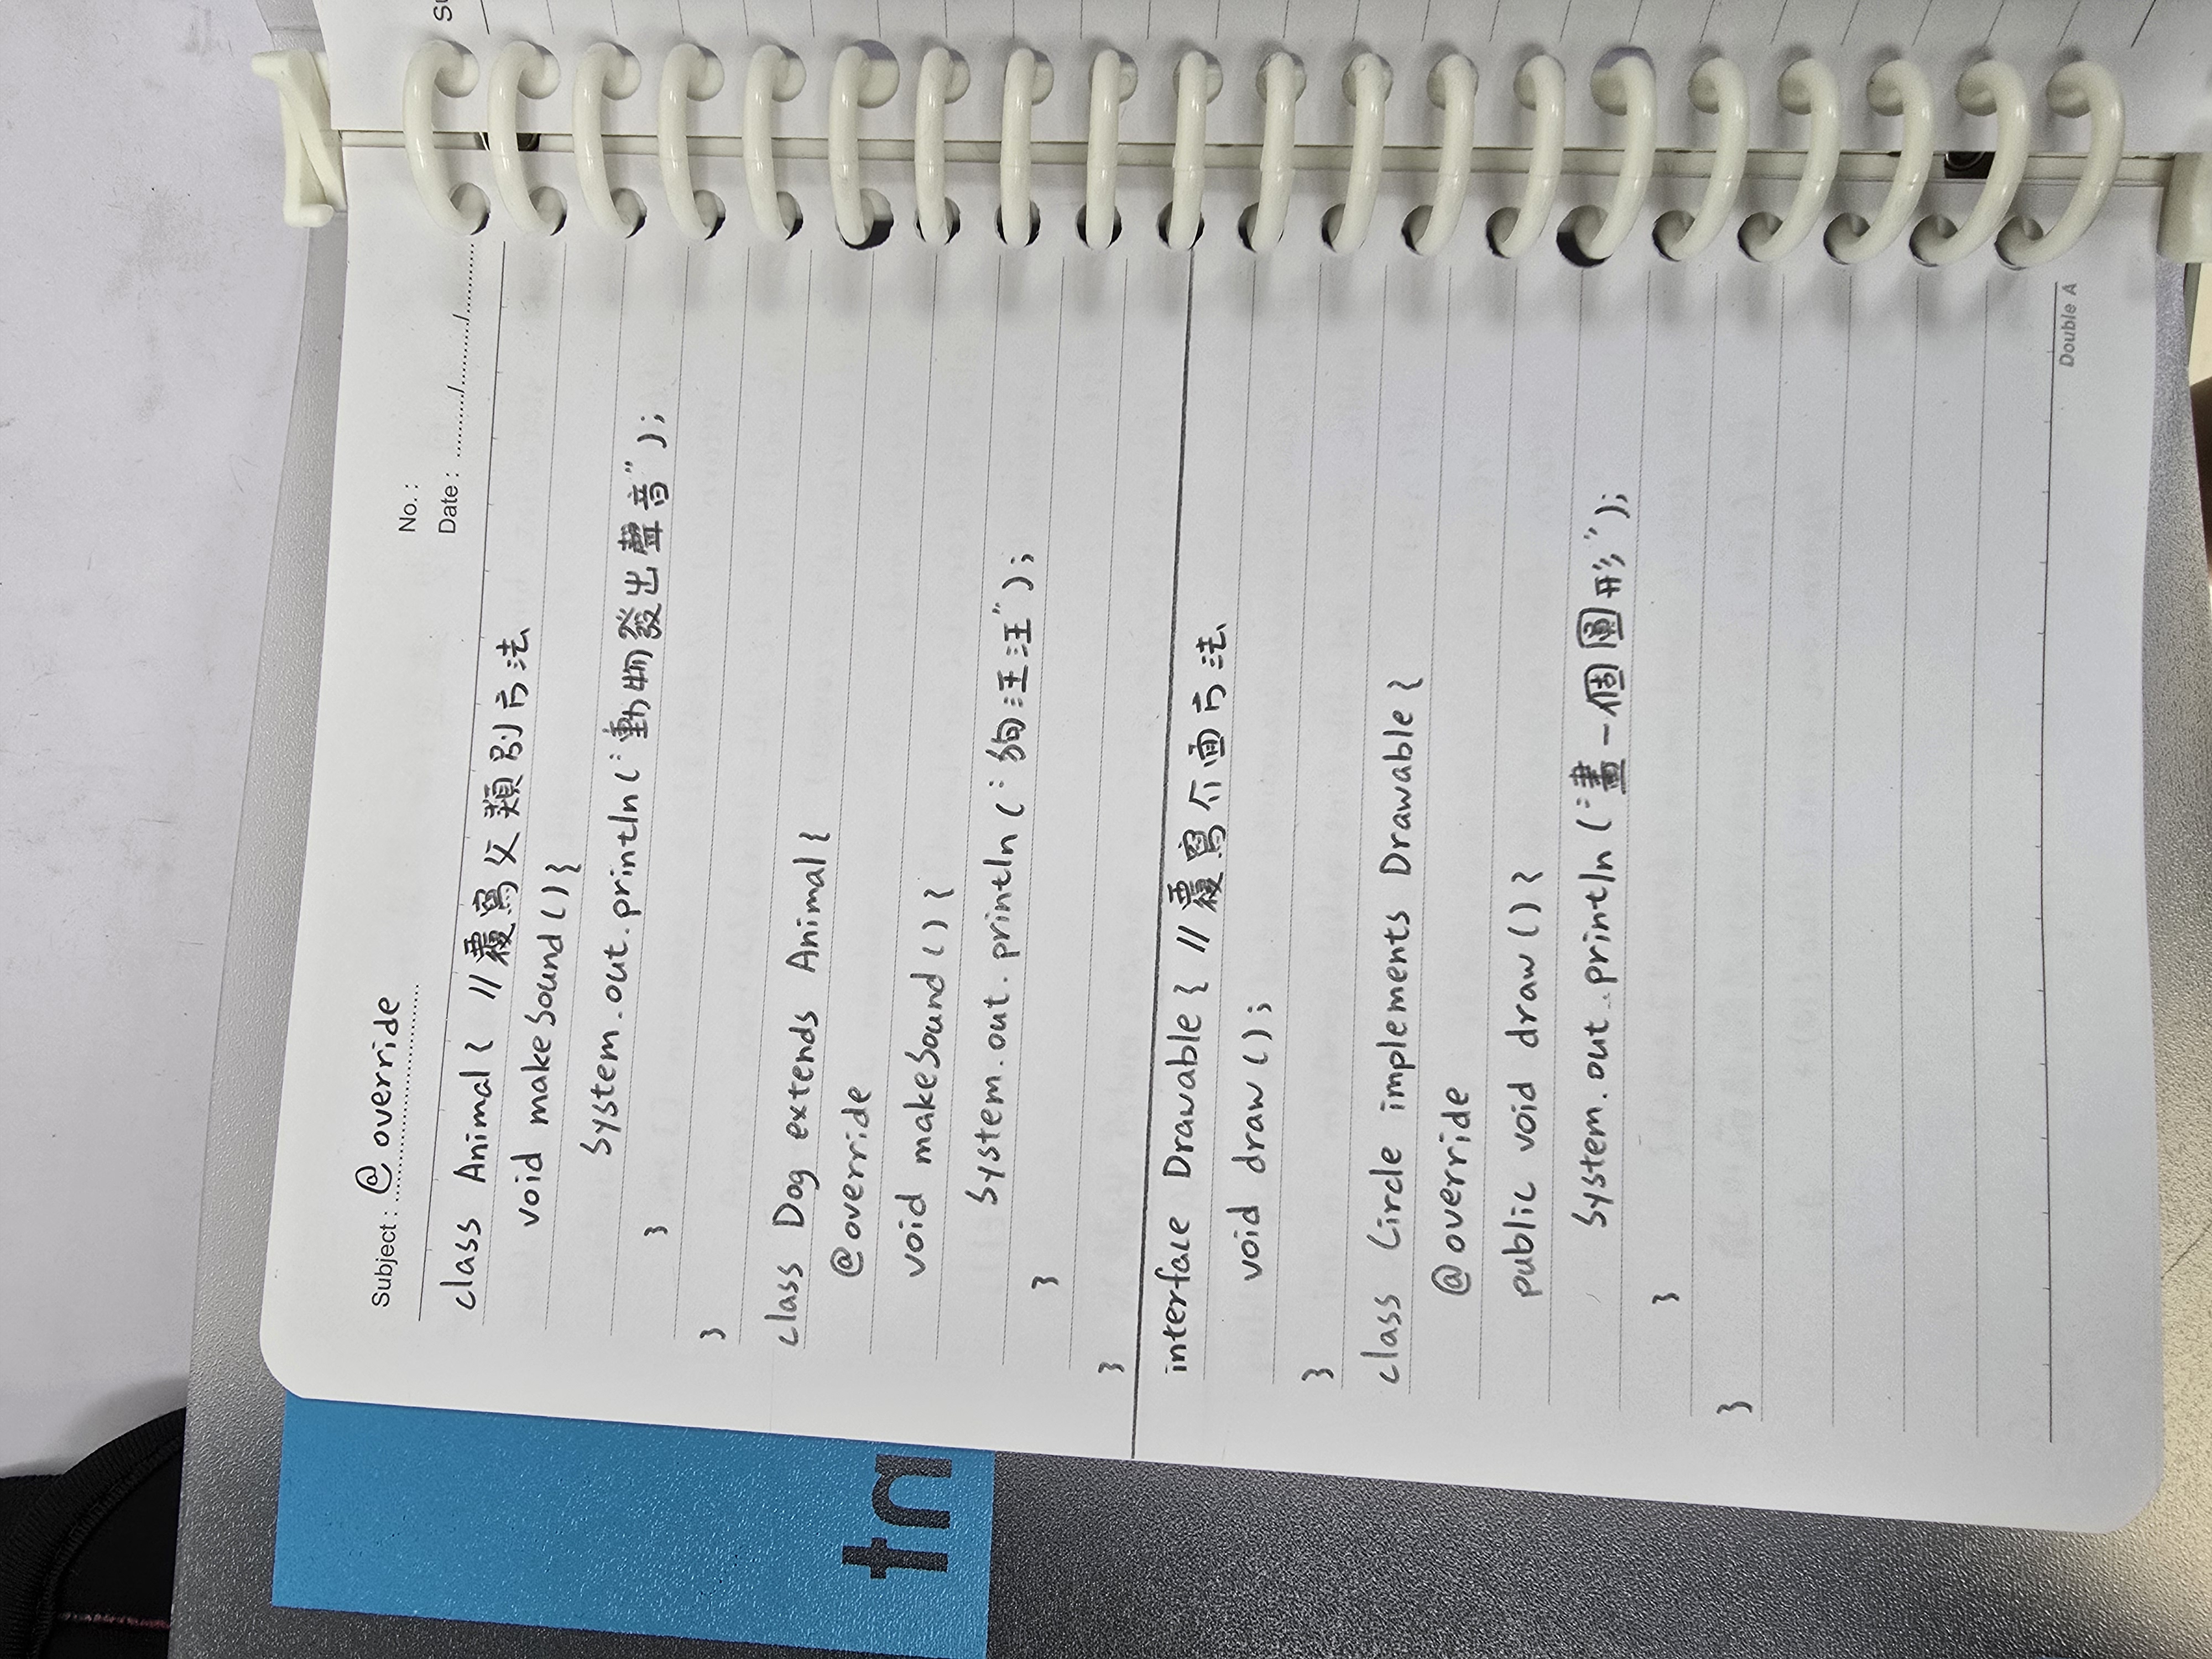 Subject: @override
No.:
Date: ......./......./.......
class Animal{ //覆寫父類別方法
void makeSound(){
System.out.println("動物發出聲音");
}
}
class Dog extends Animal{
@override
void makeSound(){
System.out.println("狗汪汪");
}
}
interface Drawable{ //覆寫介面方法
void draw();
}
class Circle implements Drawable{
@override
public void draw(){
System.out.println("畫一個圓形");
}
}
Double A
tn